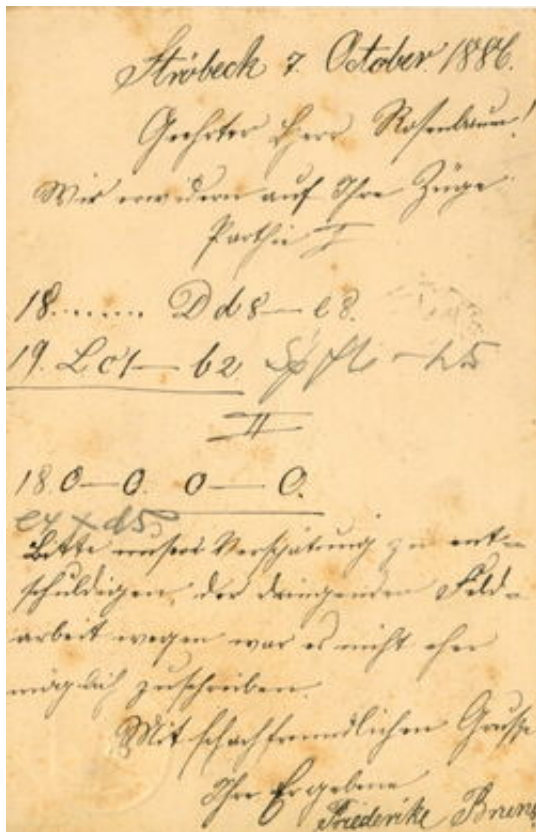 Ströbeck 7. October. 1886.
Geehrter Herr Rosenbaum!
Wir erwidern auf Ihre Züge
Parthie I
18. ....... Dd8—e8.
19. Lc1—b2. —h5
II
18. 0—0. 0—0.
e4×d5
Bitte unsere Verspätung zu ent-
schuldigen, der dringenden Feld-
arbeit wegen war es nicht eher
möglich zuschreiben.
Mit schachfreundlichen Grusse
Ihre Ergebene
Friederike Bruns